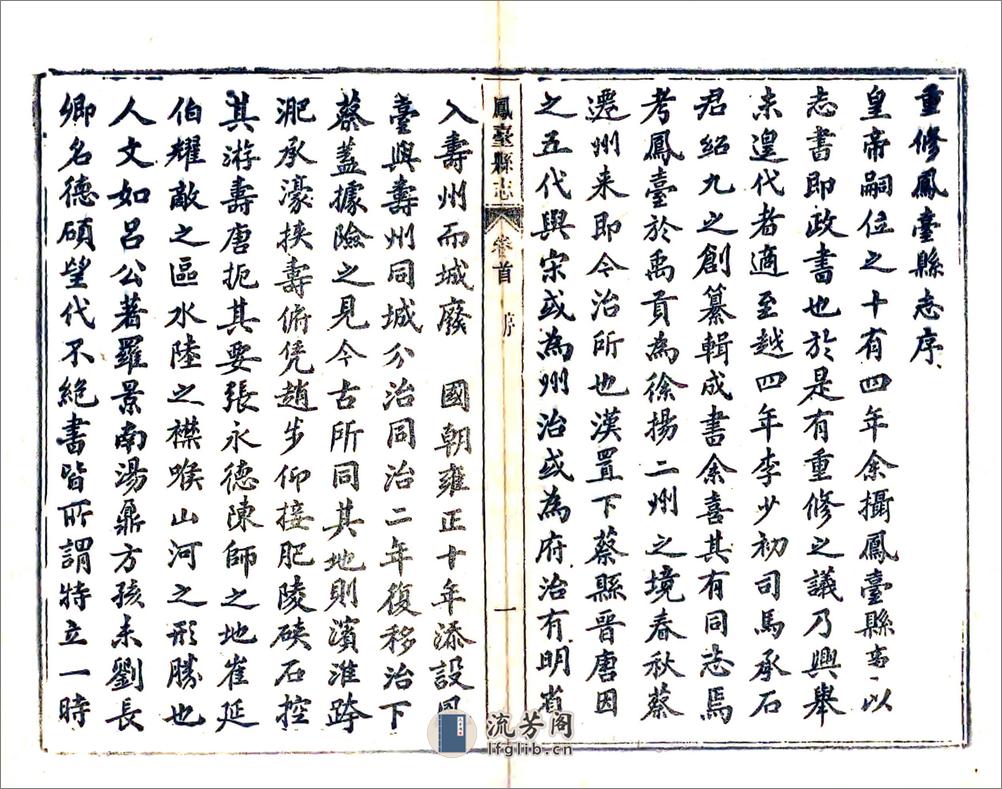 重修鳳臺縣志序
皇帝嗣位之十有四年余攝鳳臺縣事以
志書即政書也於是有重修之議乃興舉
未遑代者適至越四年李少初司馬承石
君紹九之創纂輯成書余喜其有同志焉
考鳳臺於禹貢為徐揚二州之境春秋蔡
遷州来即今治所也漢置下蔡縣晉唐因
之五代與宋或為州治或為府治有明省
鳳臺縣志 卷首 序 一
入壽州而城廢 國朝雍正十年添設鳳
臺與壽州同城分治同治二年復移治下
蔡蓋據險之見今古所同其地則濱淮跨
淝承濠挾壽俯凭趙步仰接肥陵硤石控
其游壽唐扼其要張永德陳師之地崔延
伯耀敵之區水陸之襟喉山河之形勝也
人文如呂公著羅景南湯鼎方孩未劉長
卿名德碩望代不絕書皆所謂特立一時
流芳阁
lfglib.cn